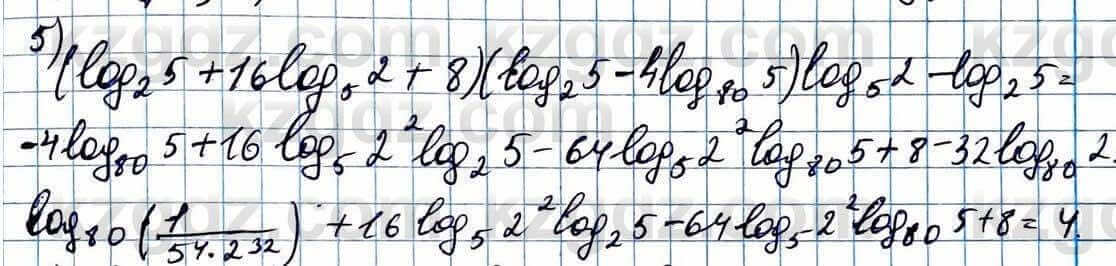 5) (log₂5 + 16log₅2 + 8)(log₂5 - 4log₈₀5)log₅2 - log₂5 =
-4log₈₀5 + 16log₅2²log₂5 - 64log₅2²log₈₀5 + 8 - 32log₈₀2.
log₈₀(1/(5⁴·2³²)) + 16log₅2²log₂5 - 64log₅2²log₈₀5 + 8 = 4.